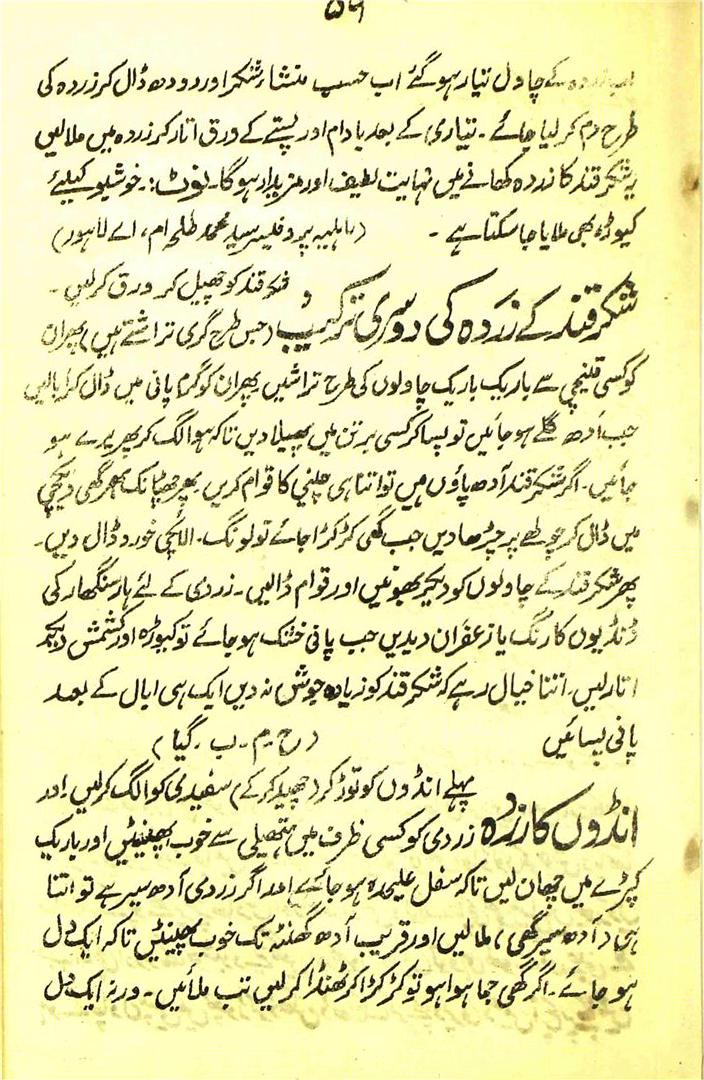 ۵۹
زردہ کے چاول تیار ہو گئے اب حسب منشاء شکر اور دودھ ڈال کر زردہ کی
طرح دم کر لیا جائے۔ تیاری کے بعد بادام اور پستے کے ورق اتار کر زردہ میں ملا لیں
یہ شکر قند کا زردہ کھانے میں نہایت لطیف اور مزیدار ہوگا۔ نوٹ:۔ خوشبو کیلئے
کیوڑہ بھی ملایا جا سکتا ہے۔ (اہلیہ پروفیسر سید محمد طلحہ ام، اے لاہور)
شکر قند کے زردہ کی دوسری ترکیب شکر قند کو چھیل کر ورق کر لیں۔
(جس طرح گری تراشتے ہیں) پھر ان
کو کسی قینچی سے باریک باریک چاولوں کی طرح تراشیں پھر ان کو گرم پانی میں ڈال کر ابالیں
جب آدھ گلے ہو جائیں تو پسا کر کسی برتن میں پھیلا دیں تاکہ ہوا لگ کر پھریرے ہو
جائیں۔ اگر شکر قند آدھ پاؤ ہوں تو اتنا ہی چینی کا قوام کریں۔ پھر چھٹانک بھر گھی دیگچی
میں ڈال کر چولھے پر چڑھا دیں جب گھی کڑکڑا جائے تو لونگ۔ الائچی خورد ڈال دیں۔
پھر شکر قند کے چاولوں کو دیکر بھونیں اور قوام ڈالیں۔ زردی کے لئے ہار سنگھار کی
ڈنڈیوں کا رنگ یا زعفران دیدیں جب پانی خشک ہو جائے تو کیوڑہ اور کشمش دیکر
اتار لیں۔ اتنا خیال رہے کہ شکر قند کو زیادہ جوش نہ دیں ایک ہی ابال کے بعد
پانی پسائیں (ح۔م۔ب۔گیا)
انڈوں کا زردہ پہلے انڈوں کو توڑ کر (چھید کر کے) سفیدی کو الگ کر لیں۔ اور
زردی کو کسی ظرف میں ہتھیلی سے خوب پھینٹیں اور باریک
کپڑے میں چھان لیں تاکہ سفل علیحدہ ہو جائے اور اگر زردی آدھ سیر ہے تو اتنا
ہی (آدھ سیر گھی) ملا لیں اور قریب آدھ گھنٹہ تک خوب پھینٹیں تاکہ ایک دل
ہو جائے۔ اگر گھی جما ہوا ہو تو کڑکڑا کر ٹھنڈا کر لیں تب ملائیں۔ ورنہ ایک دل